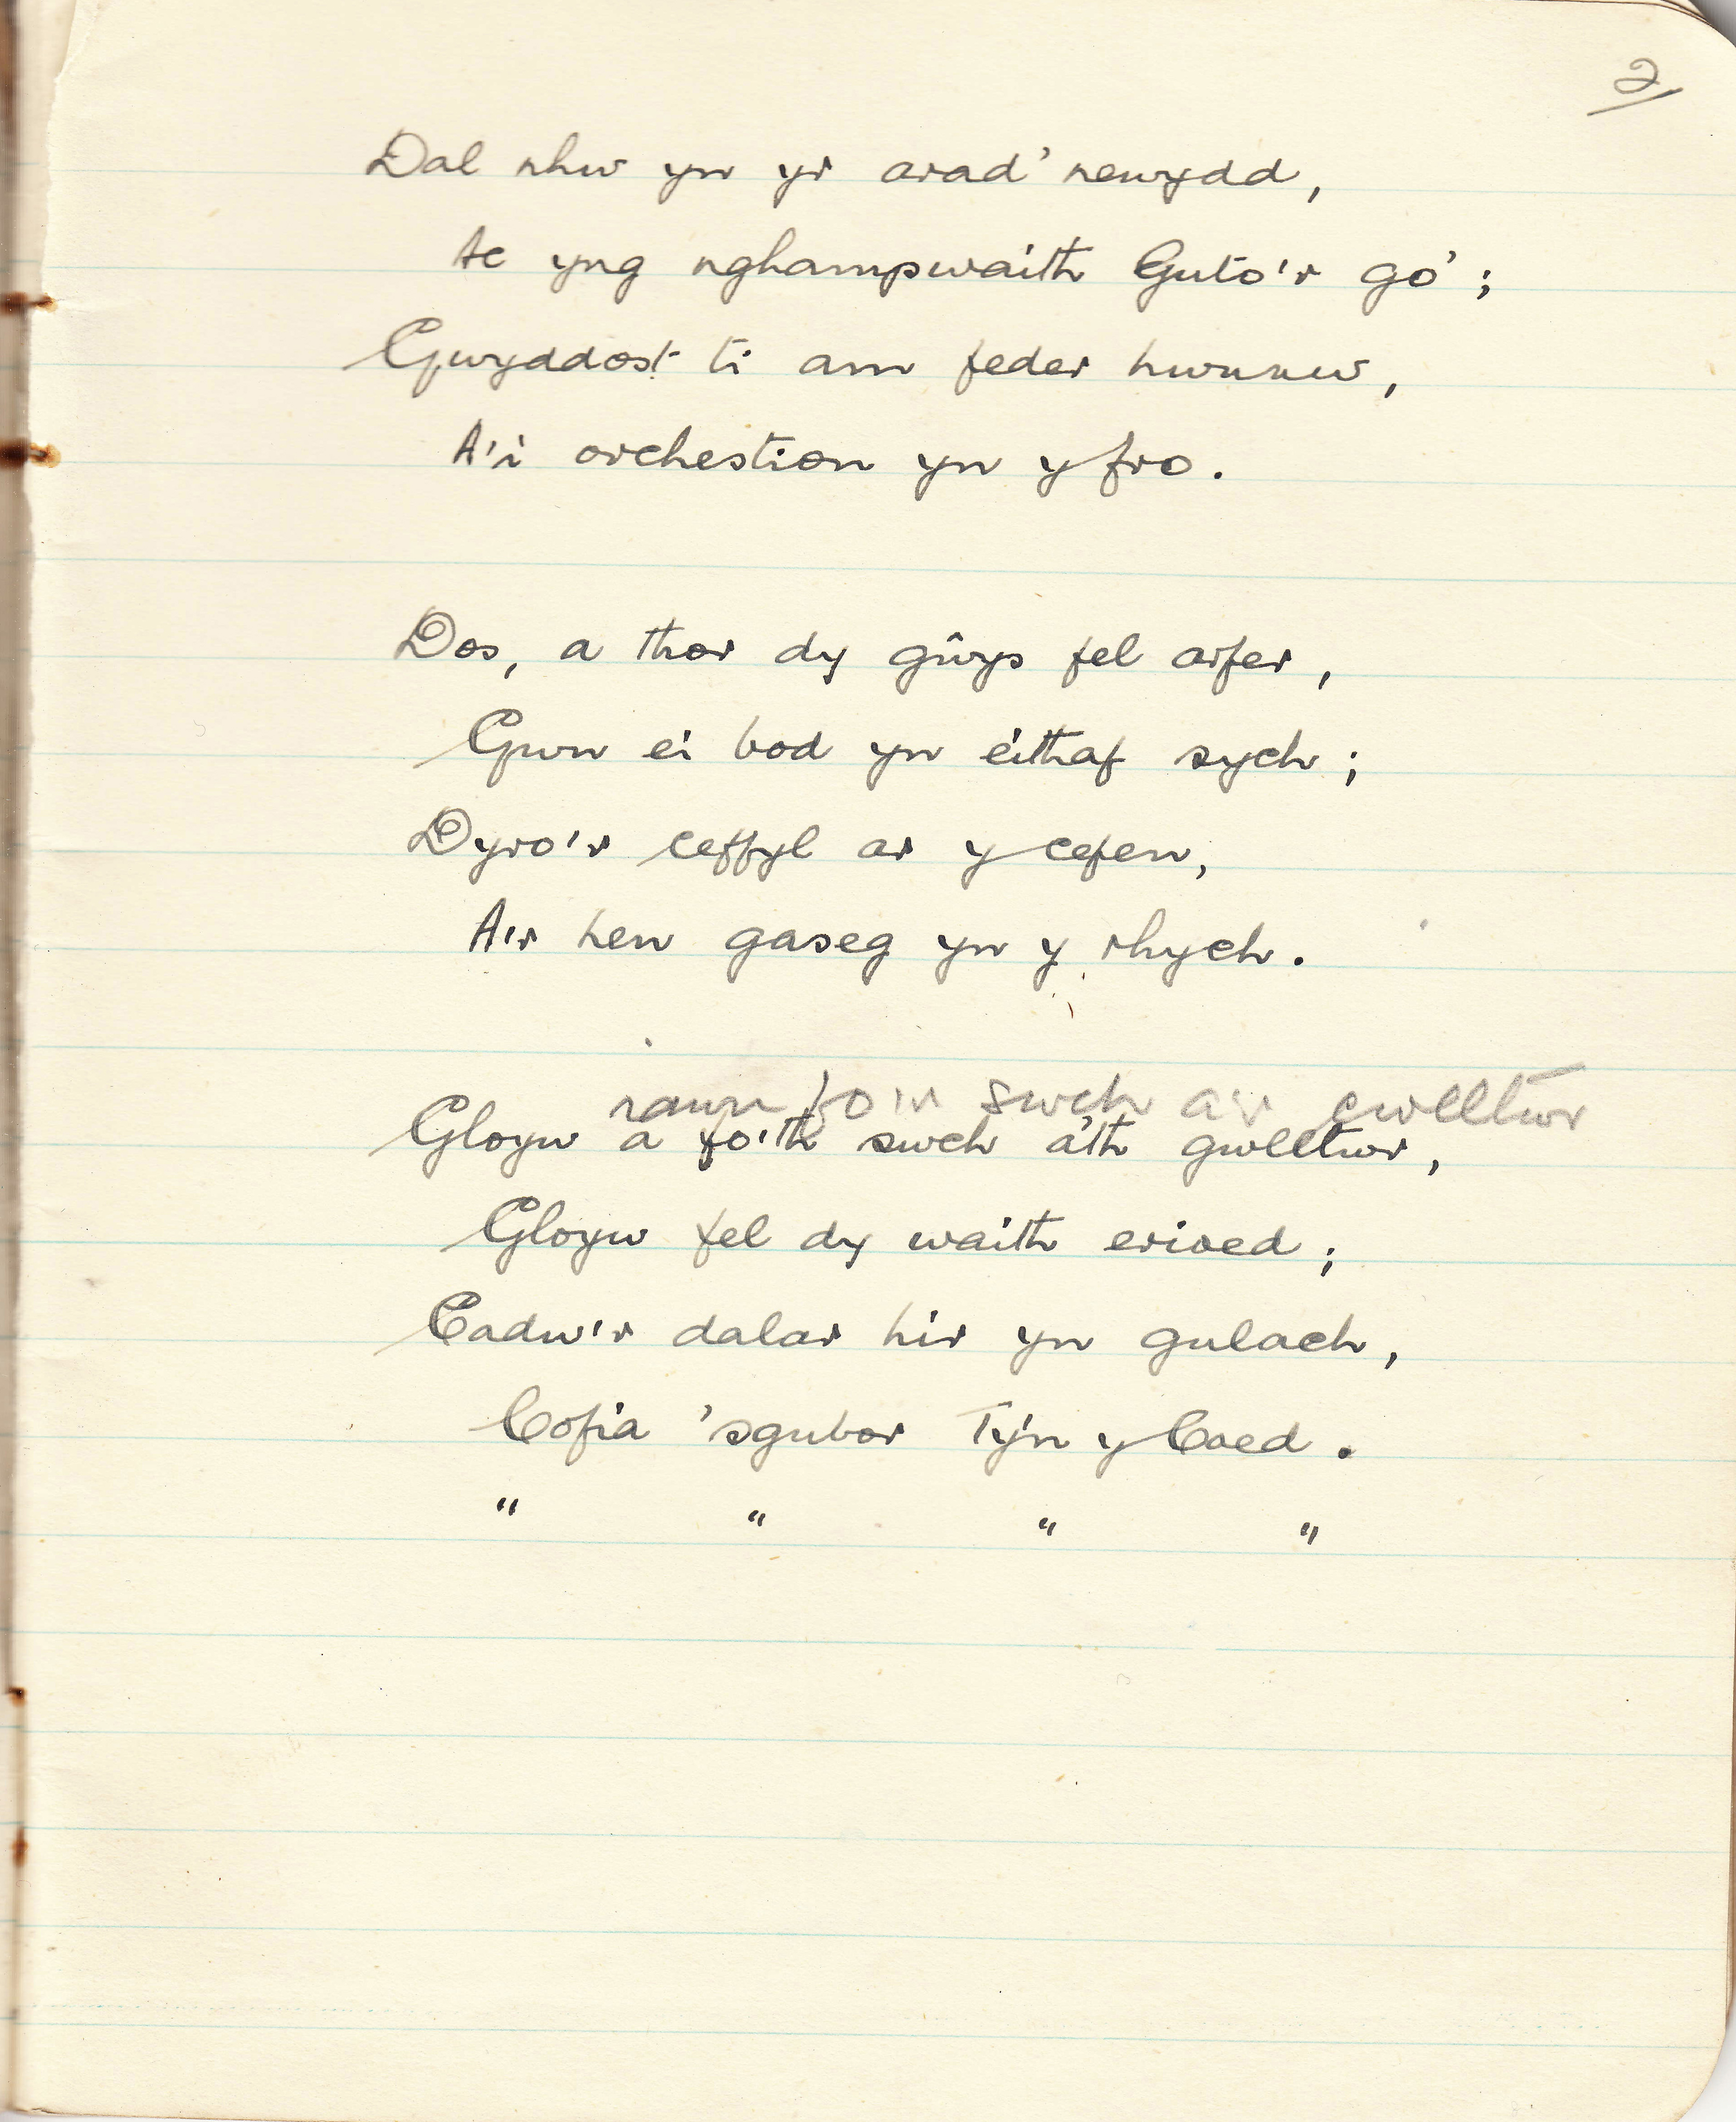 2
Dal nhw yn yr arad' newydd,
Ac yng nghampwaith Guto'r go';
Gwyddost ti am feder hwnnw,
A'i orchestion yn y fro.
Dos, a thor dy gŵys fel arfer,
Gwn ei bod yn eithaf sych;
Dyro'r ceffyl ar y cefen,
A'r hen gaseg yn y rhych.
iawn fo'r swch a'r cwlltwr
Gloyw a fo'th swch a'th gwlltwr,
Gloyw fel dy waith erioed;
Cadw'r dalar hir yn gulach,
Cofia 'sgubor Ty'n y Coed.
" " " "